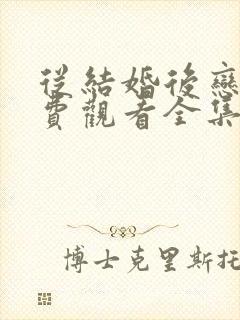 從結婚後戀
費觀看全集
博士克里斯托